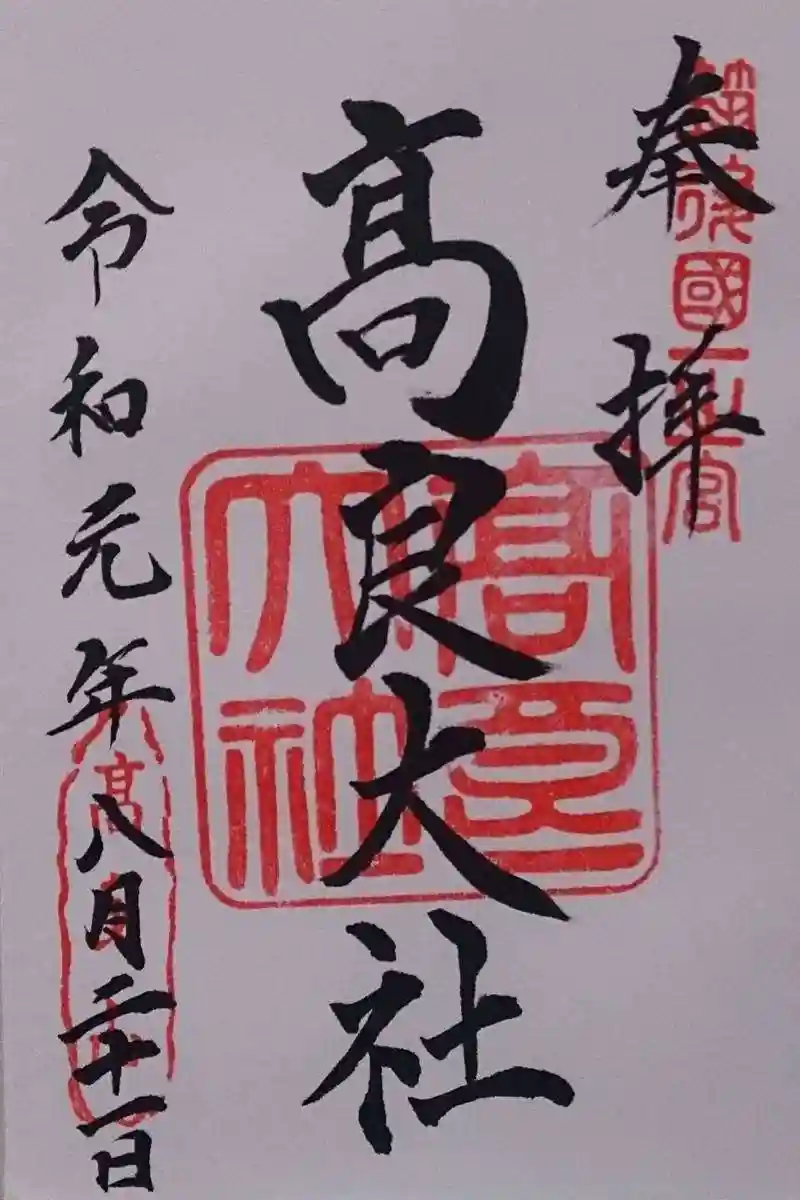 奉拝
筑後國一之宮
髙良大社
髙良大社
令和元年八月二十一日